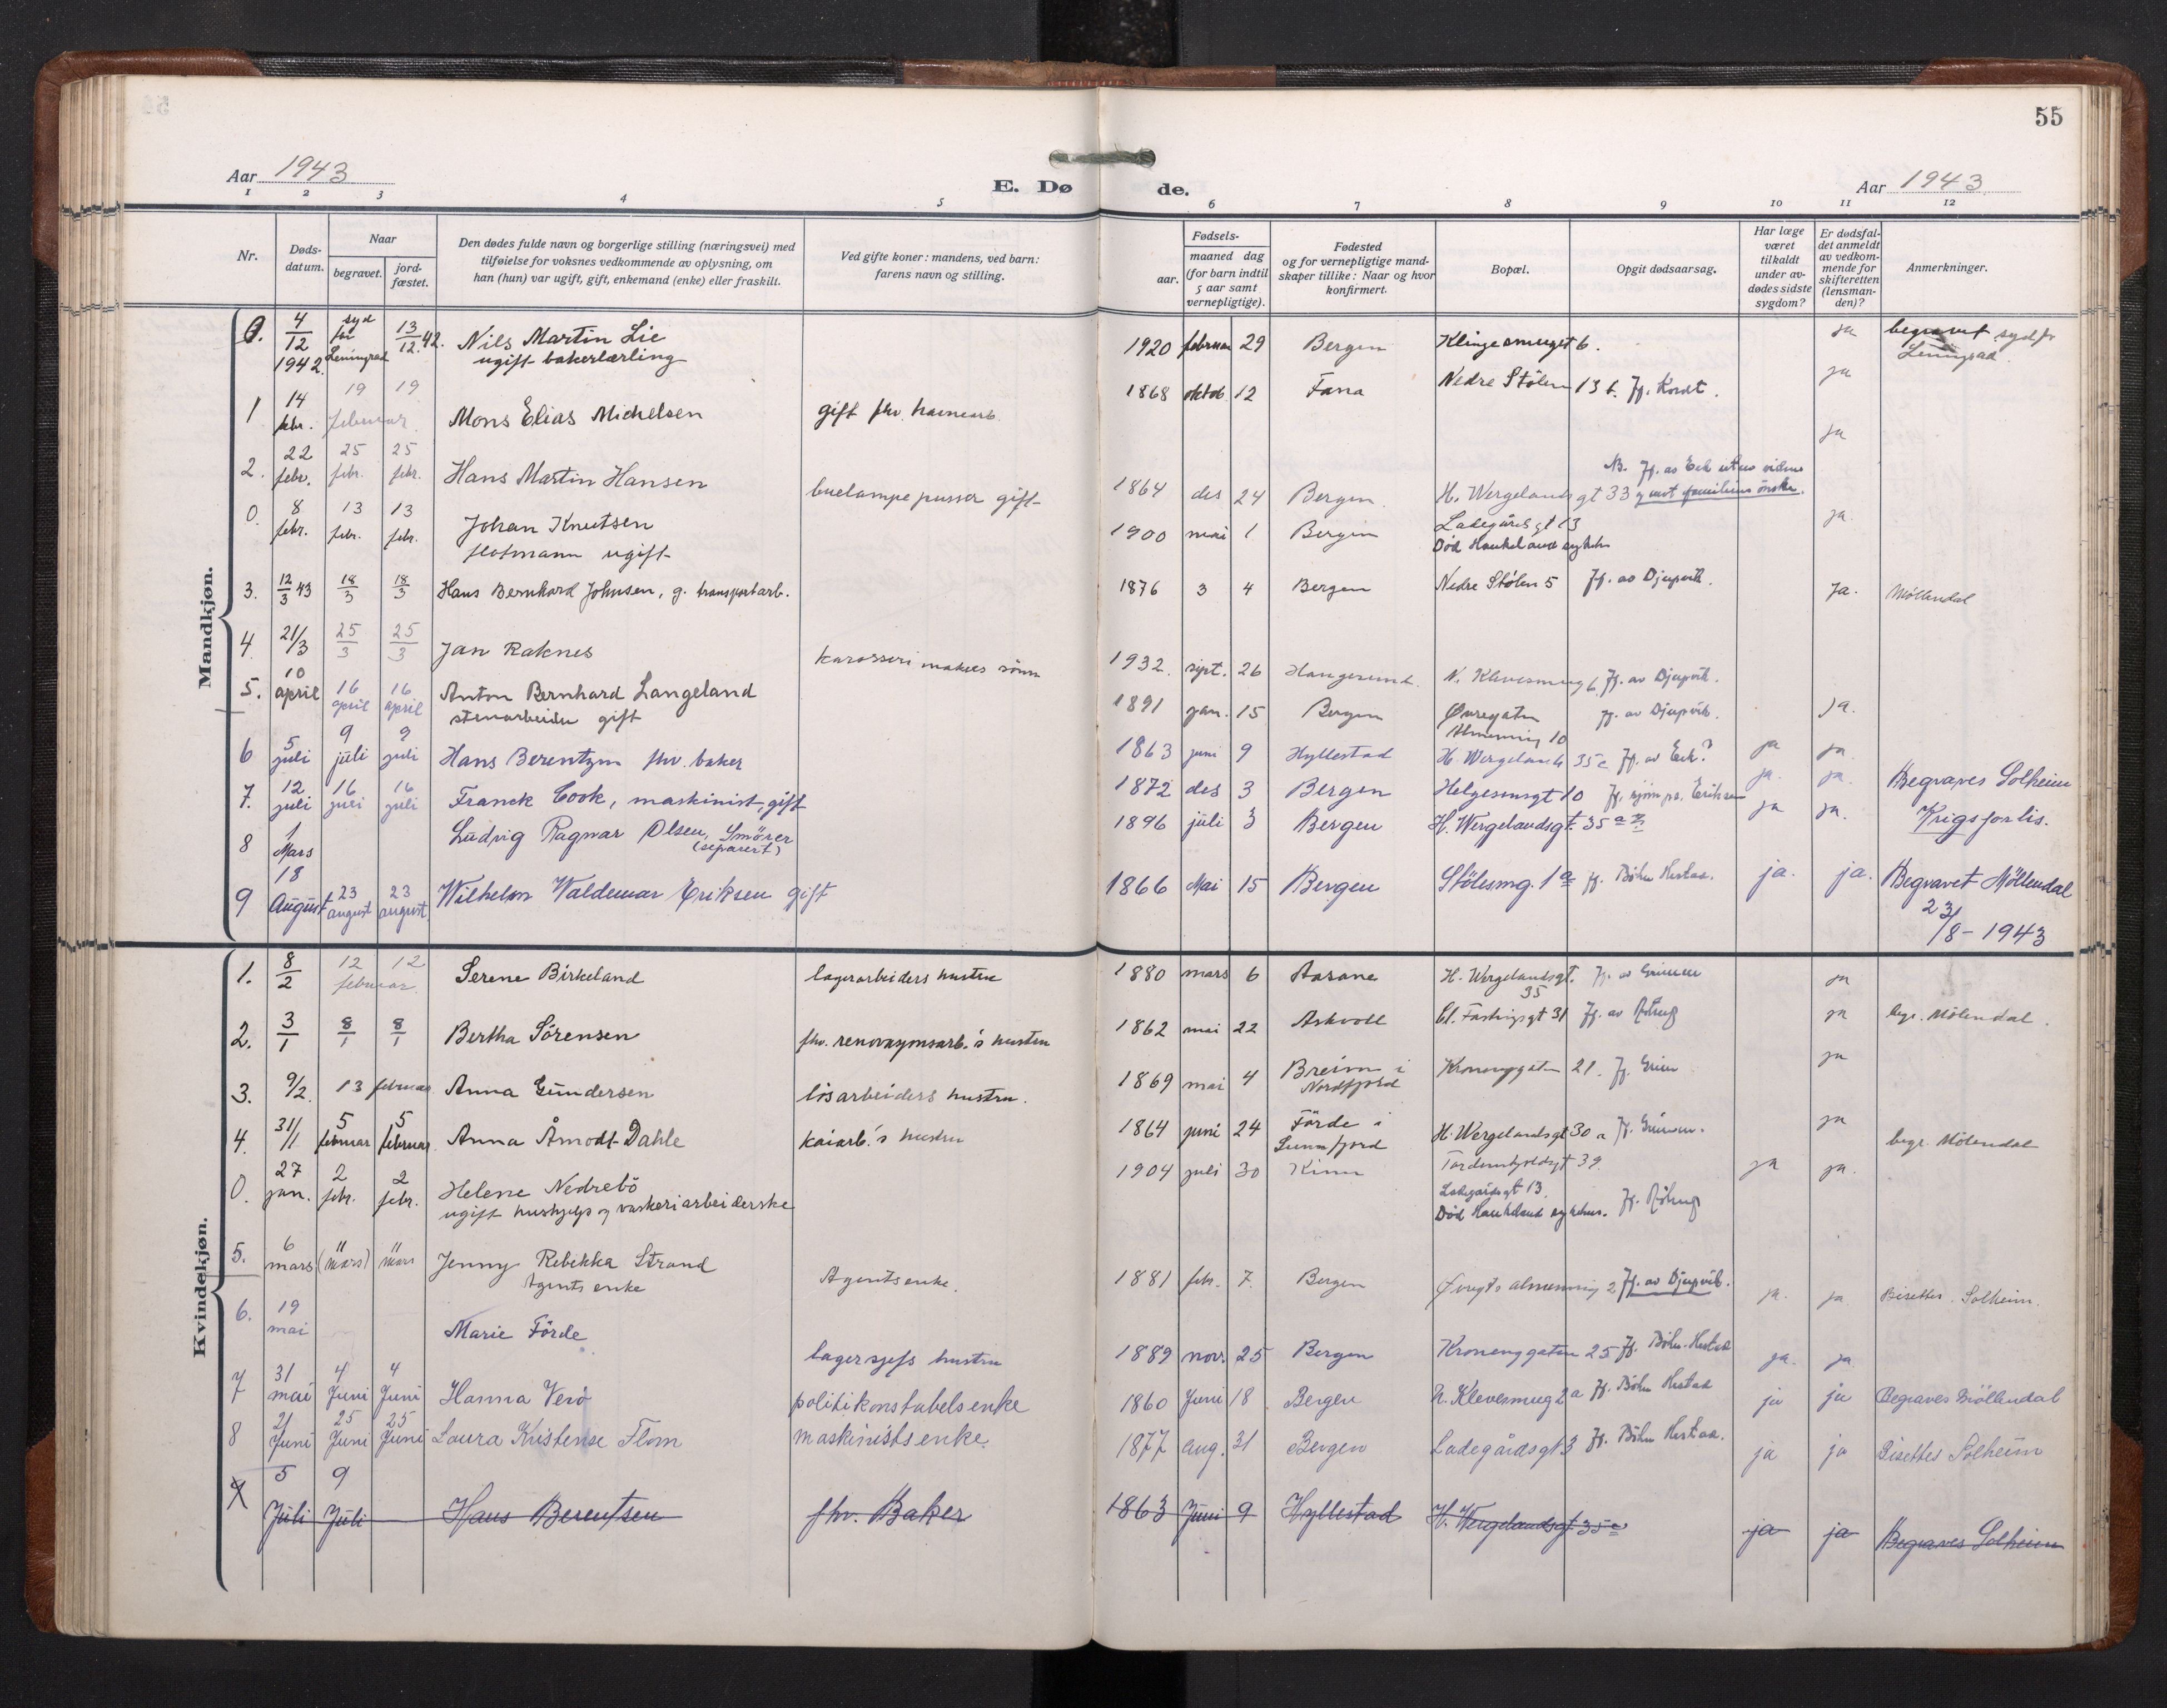 55
Aar 1943
E. Dø de.
Aar 1943
1 2 3 4 5 6 7 8 9 10 11 12
Nr.
Døds-
datum.
Naar
begravet.
jord-
fæstet.
Den dødes fulde navn og borgerlige stilling (næringsvei) med
tilføielse for voksnes vedkommende av oplysning, om
han (hun) var ugift, gift, enkemand (enke) eller fraskilt.
Ved gifte koner: mandens, ved barn:
farens navn og stilling.
Fødsels-
aar.
maaned dag
(for barn indtil
5 aar samt
vernepligtige).
Fødested
og for vernepligtige mand-
skaper tillike: Naar og hvor
konfirmert.
Bopæl.
Opgit dødsaarsag.
Har læge
været
tilkaldt
under av-
dødes sidste
sygdom?
Er dødsfal-
det anmeldt
av vedkom-
mende for
skifteretten
(lensman-
den)?
Anmerkninger.
Mandkjøn.
0. 4/12 1942 syd for Leningrad 13/12.42. Nils Martin Lie 1920 februar 29 Bergen Klingesmuget 6. ja begravet syd for
ugift bakerlærling Leningrad
1 14 febr. 19 19 februar Mons Elias Michelsen gift fhv. havnearb. 1868 oktob. 12 Fana Nedre Stølen 13 b. Jf. Kordt. ja
ja
2. 22 febr. 25 febr. 25 febr. Hans Martin Hansen buelampepusser gift 1864 des 24 Bergen H. Wergelandsgt 33 mot familiens ønske.
0. 8 febr. 13 febr. 13 febr. Johan Knutsen 1900 mai 1 Bergen Ladegårdsgt 13 ja
flotmann ugift Død Haukeland sykehus
3. 12/3 43 18/3 18/3 Hans Bernhard Johnsen, g. transportarb. 1876 3 4 Bergen Nedre Stølen 5 Jf. av Djupvik. Ja. Møllendal
4. 21/3 25/3 25/3 Jan Raknes karosserimakers sønn 1932. sept. 26 Haugesund N. Klevesmug 6. Jf. av Djupvik.
5. 10 april 16 april 16 april Anton Bernhard Langeland 1891 jan. 15 Bergen Øvregaten Jf. av Djupvik. ja.
stenarbeider gift Almenning 10
6 5 juli 9 juli 9 juli Hans Berentzen fhv. baker 1863 juni 9 Hyllestad H. Wergelands 35c Jf. av Eek? ja ja
7. 12 juli 16 juli 16 juli Franck Cook, maskinist, gift 1872 des 3 Bergen Helgesensgt 10 Jf. sjømpr. Eriksen ja. ja. Begraves Solheim
8 1 Mars Ludvig Ragnar Olsen, Smører 1896 juli 3 Bergen H. Wergelandsgt. 35 a ja ja. Krigsforlis.
(separert)
9 18 August 23 august 23 august. Wilhelm Waldemar Eriksen gift 1866 Mai 15 Bergen Stølesmg. 1 a Jf. Bøhn Hestad. ja. ja. Begravet Møllendal
23/8-1943
Kvindekjøn.
1. 8/2 12 12 februar. Serene Birkeland lagerarbeiders hustru 1880 mars 6 Aasane H. Wergelandsgt. 35 Jf. av Grimen ja
2. 3/1 8/1 8/1 Bertha Sörensen fhv. renovasjonsarb.'s hustru 1862 mai 22 Askvoll Cl. Fastingsgt 31 Jf. av Røtrup ja begr. Mølendal.
3. 9/2. 13 februar Anna Gundersen løsarbeiders hustru. 1869 mai 4 Breim i Nordfjord Kroneggaten 21. Jf. Grimen ja
4. 31/1 5 februar 5 februar. Anna Åmodt Dahle kaiarb.'s hustru 1864 juni 24 Førde i Sunnfjord H. Wergelandsgt 30 a Jf. Grimen. ja begr. Mølendal
0. 27 jan. 2 febr. 2 febr. Helene Nedrebö 1904 juli 30 Kinn Tordenskjoldsgt 39. ja ja.
ugift hushjelp og vaskeriarbeiderske Ladegårdsgt 13.
Død Haukeland sykehus. Jf. Røtrup
5. 6 mars 11 (mars) 11 mars Jenny Rebekka Strand Agents enke. 1881 febr. 7. Bergen Øvregts almenning 2 Jf. av Djupvik. ja. ja Bisettes. Solheim.
Agents enke
6. 19 mai Marie Förde lagersjefs hustru 1889 nov. 25 Bergen Kroneggaten 25 Jf. Bøhn-Hestad ja. ja
7 31 mai 4 Juni 4 Juni Hanna Verö politikonstabels enke 1860 Juni 18. Bergen N. Klevesmug 2 a Jf. Bøhn Hestad ja ja Begraves Møllendal
8 21 Juni 25 Juni 25 Juni Laura Kristense Flom maskinists enke. 1877 aug. 31 Bergen Ladegårdsgt 3 Jf. Bøhn Hestad. ja ja Bisettes Solheim
5 Juli 9 Juli Hans Berentsen fhv. Baker 1863 Juni 9 Hyllestad H. Wergelandsgt. 35 c ja ja Begraves Solheim